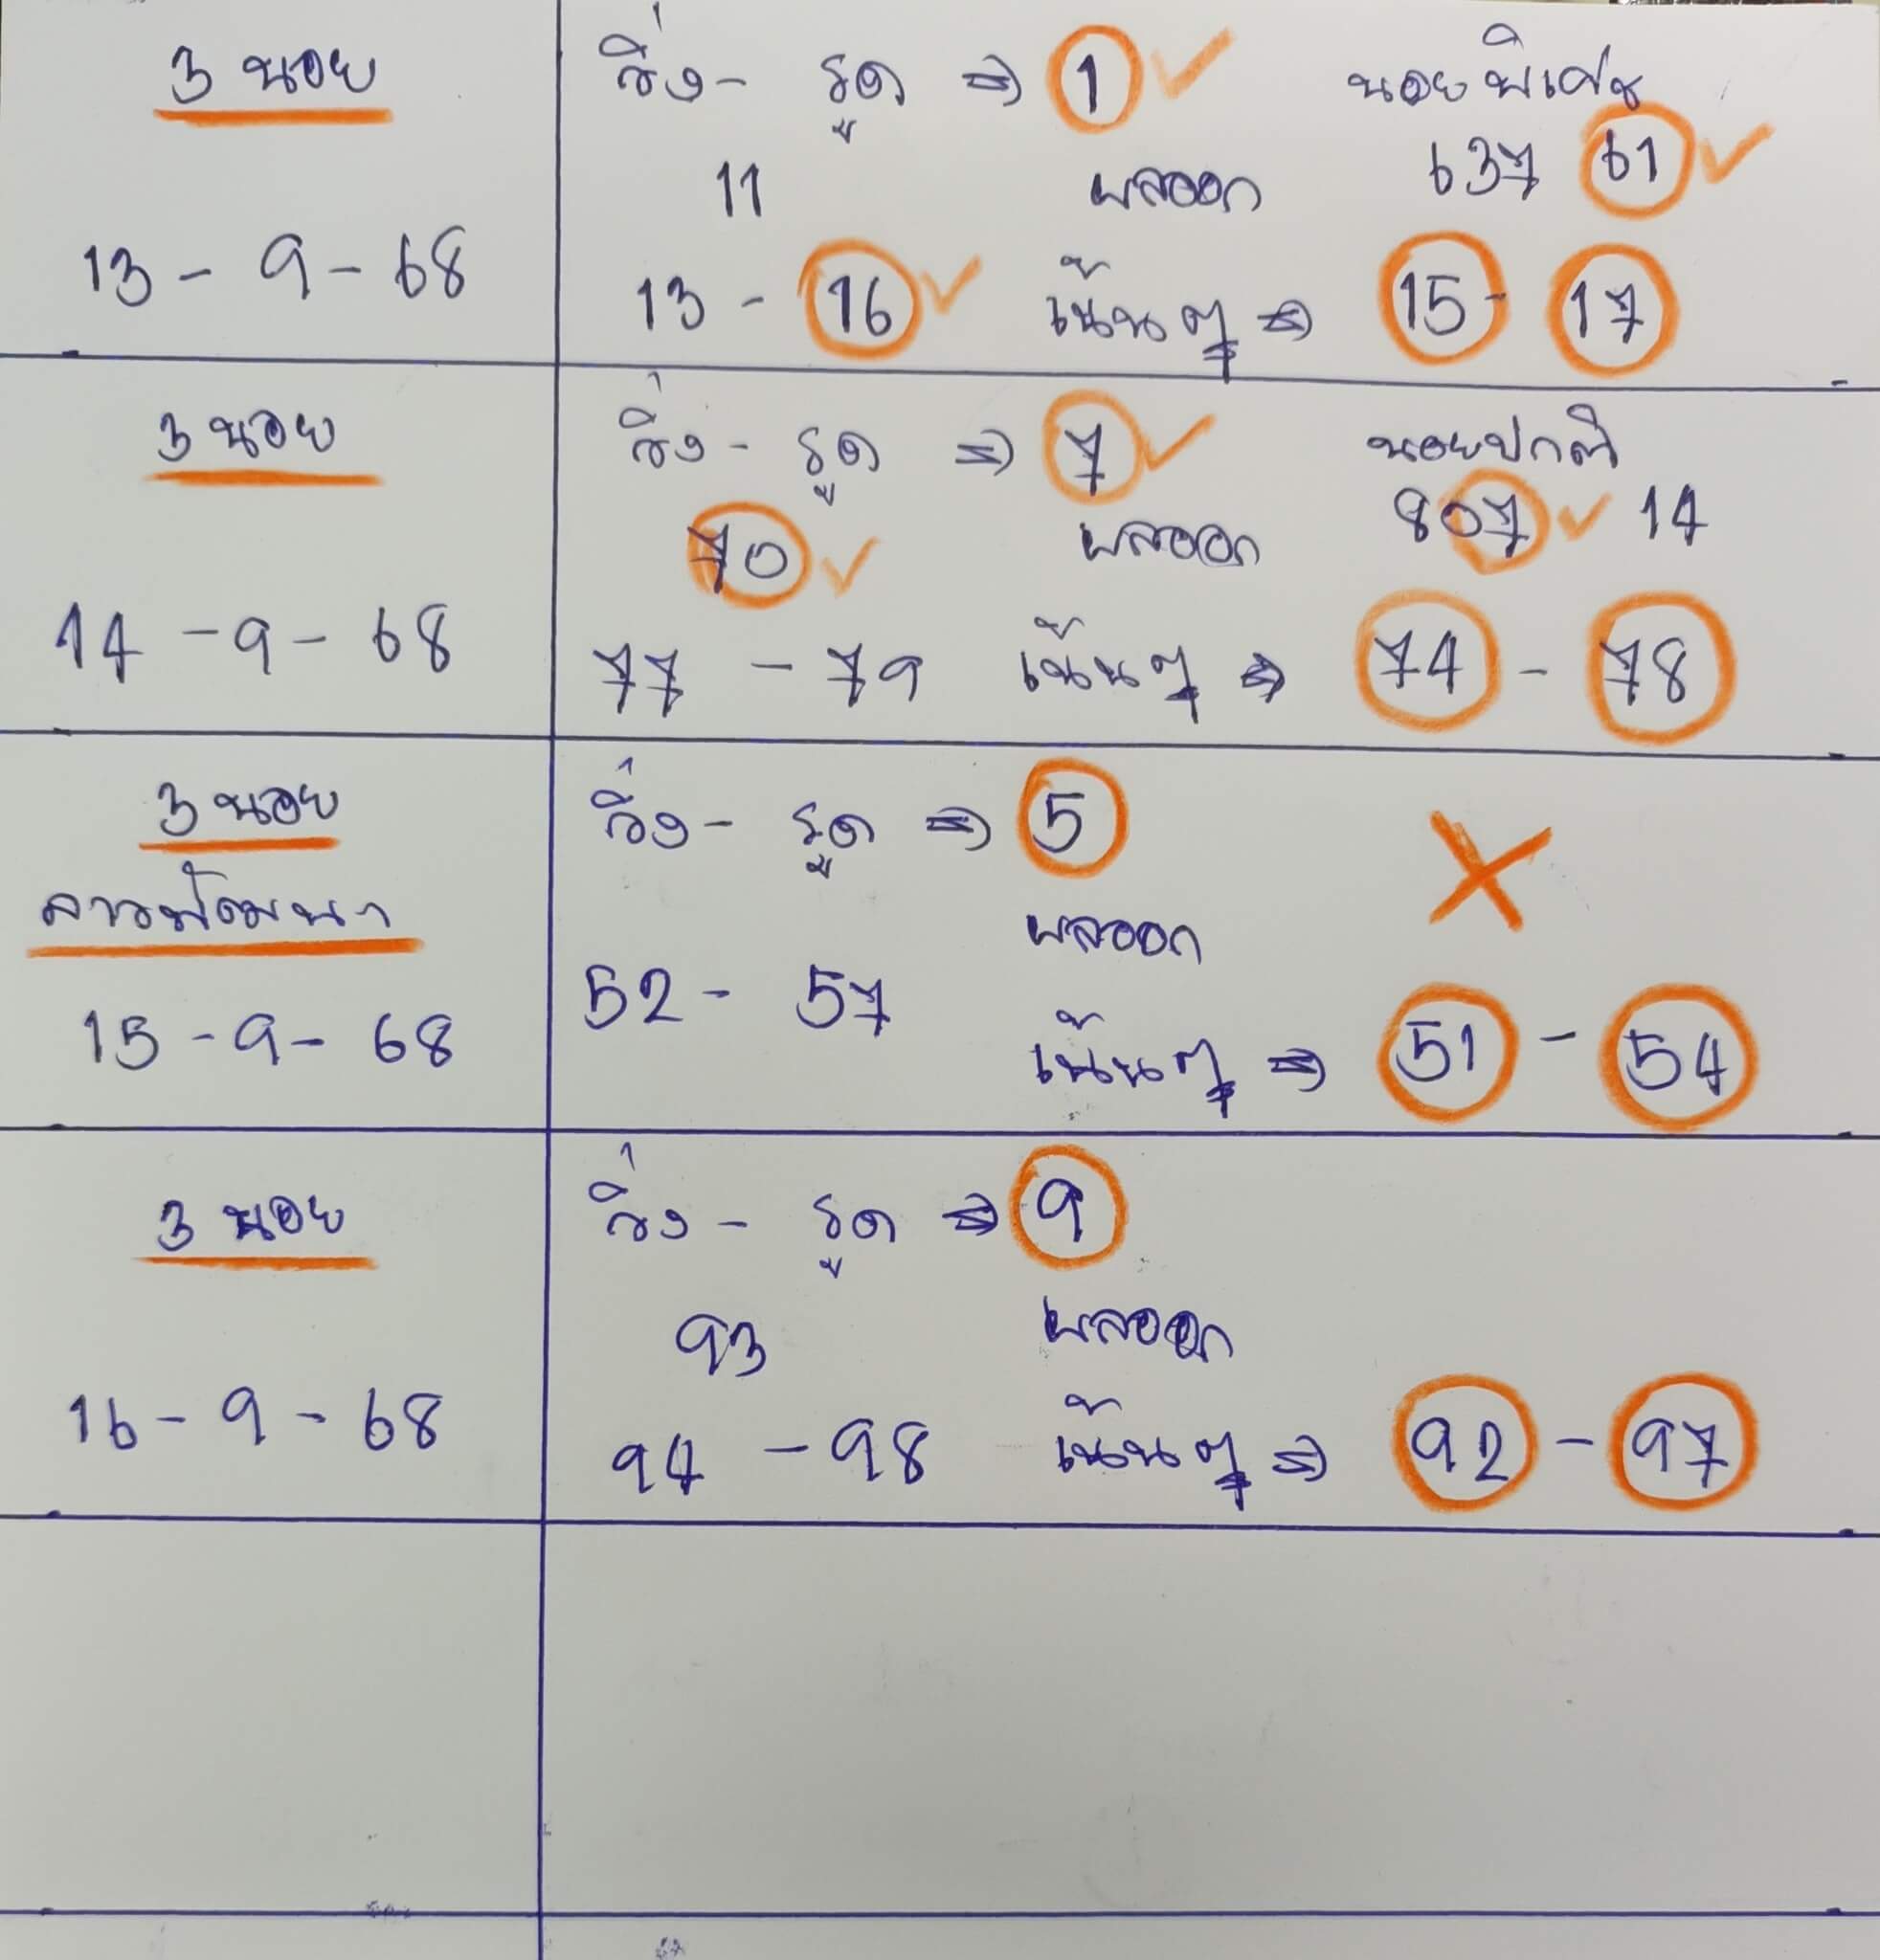 3 นอย
13 - 9 - 68
วิ่ง - รูด ⇒ 1 ✓ นอยพิเศษ
11 ผลออก 637 61 ✓
13 - 16 ✓ เน้นๆ ⇒ 15 - 17
3 นอย
14 - 9 - 68
วิ่ง - รูด ⇒ 7 ✓ นอยปกติ
70 ✓ ผลออก 807 ✓ 14
77 - 79 เน้นๆ ⇒ 74 - 78
3 นอย
ลาวพัฒนา
15 - 9 - 68
วิ่ง - รูด ⇒ 5
ผลออก
52 - 57
เน้นๆ ⇒ 51 - 54
3 นอย
16 - 9 - 68
วิ่ง - รูด ⇒ 9
93 ผลออก
94 - 98 เน้นๆ ⇒ 92 - 97